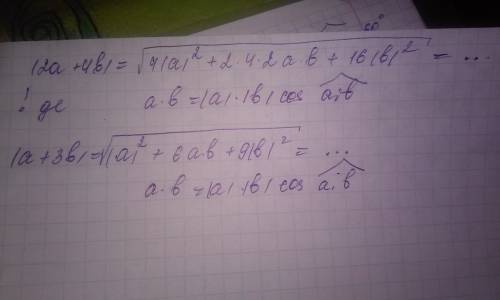 |2a+4b| = √4|a|² + 2·4·2a·b + 16|b|² = ...
! де a·b = |a|·|b| cos a;b
|a+3b| = √|a|² + 6ab + 9|b|² = ...
a·b = |a|·|b| cos a;b